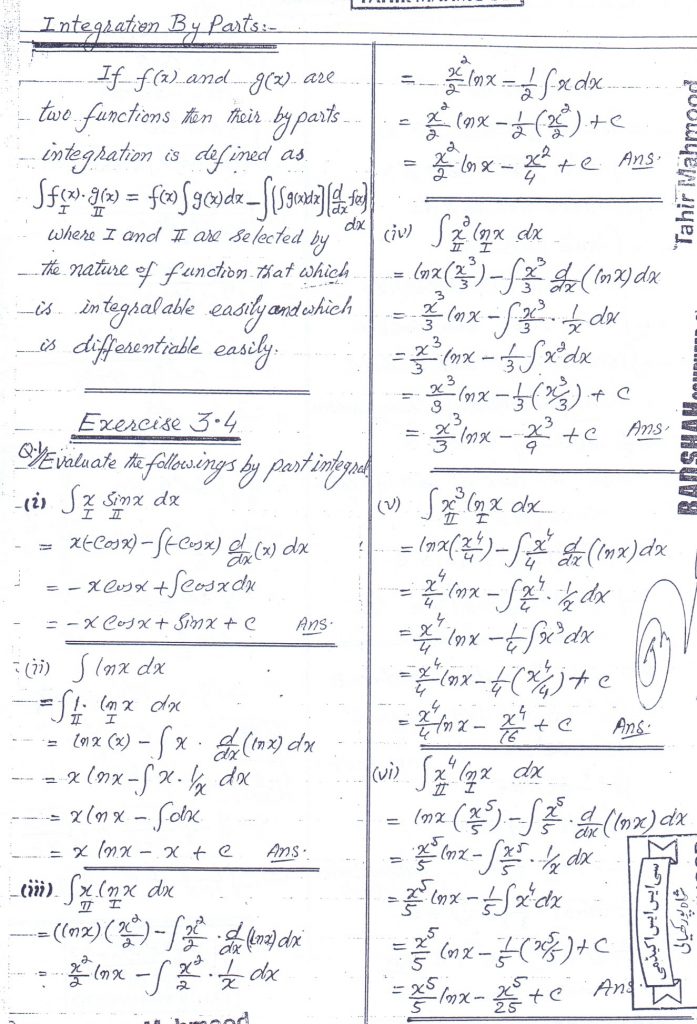 Integration By Parts:-
If f(x) and g(x) are
two functions then their by parts
integration is defined as
∫f(x)·g(x) = f(x)∫g(x)dx-∫[∫g(x)dx][d/dx f(x)]dx
I II
where I and II are selected by
the nature of function that which
is integralable easily and which
is differentiable easily.
Exercise 3.4
Q.1/ Evaluate the followings by part integral
(i) ∫x Sinx dx
I II
= x(-Cosx)-∫(-Cosx) d/dx(x) dx
= -x Cosx+∫Cosxdx
= -x Cosx + Sinx + c Ans.
(ii) ∫lnx dx
= ∫1. lnx dx
II I
= lnx(x) - ∫x . d/dx(lnx) dx
= x lnx-∫x.1/x dx
= x lnx - ∫dx
= x lnx - x + c Ans.
(iii) ∫x lnx dx
II I
= ((lnx)(x²/2)-∫x²/2 . d/dx(lnx)dx
= x²/2 lnx - ∫x²/2 . 1/x dx
= x²/2 lnx - 1/2 ∫xdx
= x²/2 lnx-1/2(x²/2)+c
= x²/2 lnx - x²/4 + c Ans.
(iv) ∫x² lnx dx
II I
= lnx(x³/3)-∫x³/3 d/dx(lnx)dx
= x³/3 lnx-∫x³/3 . 1/x dx
= x³/3 lnx-1/3∫x²dx
= x³/3 lnx-1/3(x³/3) + c
= x³/3 lnx - x³/9 + c Ans.
(v) ∫x³ lnx dx
II I
= lnx(x⁴/4)-∫x⁴/4 d/dx(lnx)dx
= x⁴/4 lnx-∫x⁴/4 . 1/x dx
= x⁴/4 lnx-1/4∫x³dx
= x⁴/4 lnx-1/4(x⁴/4)+c
= x⁴/4 lnx - x⁴/16 + c Ans.
(vi) ∫x⁴ lnx dx
II I
= lnx(x⁵/5)-∫x⁵/5 . d/dx(lnx)dx
= x⁵/5 lnx-∫x⁵/5 . 1/x dx
= x⁵/5 lnx-1/5∫x⁴dx
= x⁵/5 lnx-1/5(x⁵/5)+c
= x⁵/5 lnx- x⁵/25 + c Ans
Tahir Mahmood
BADSHAH
سی ایس ایس اکیڈمی